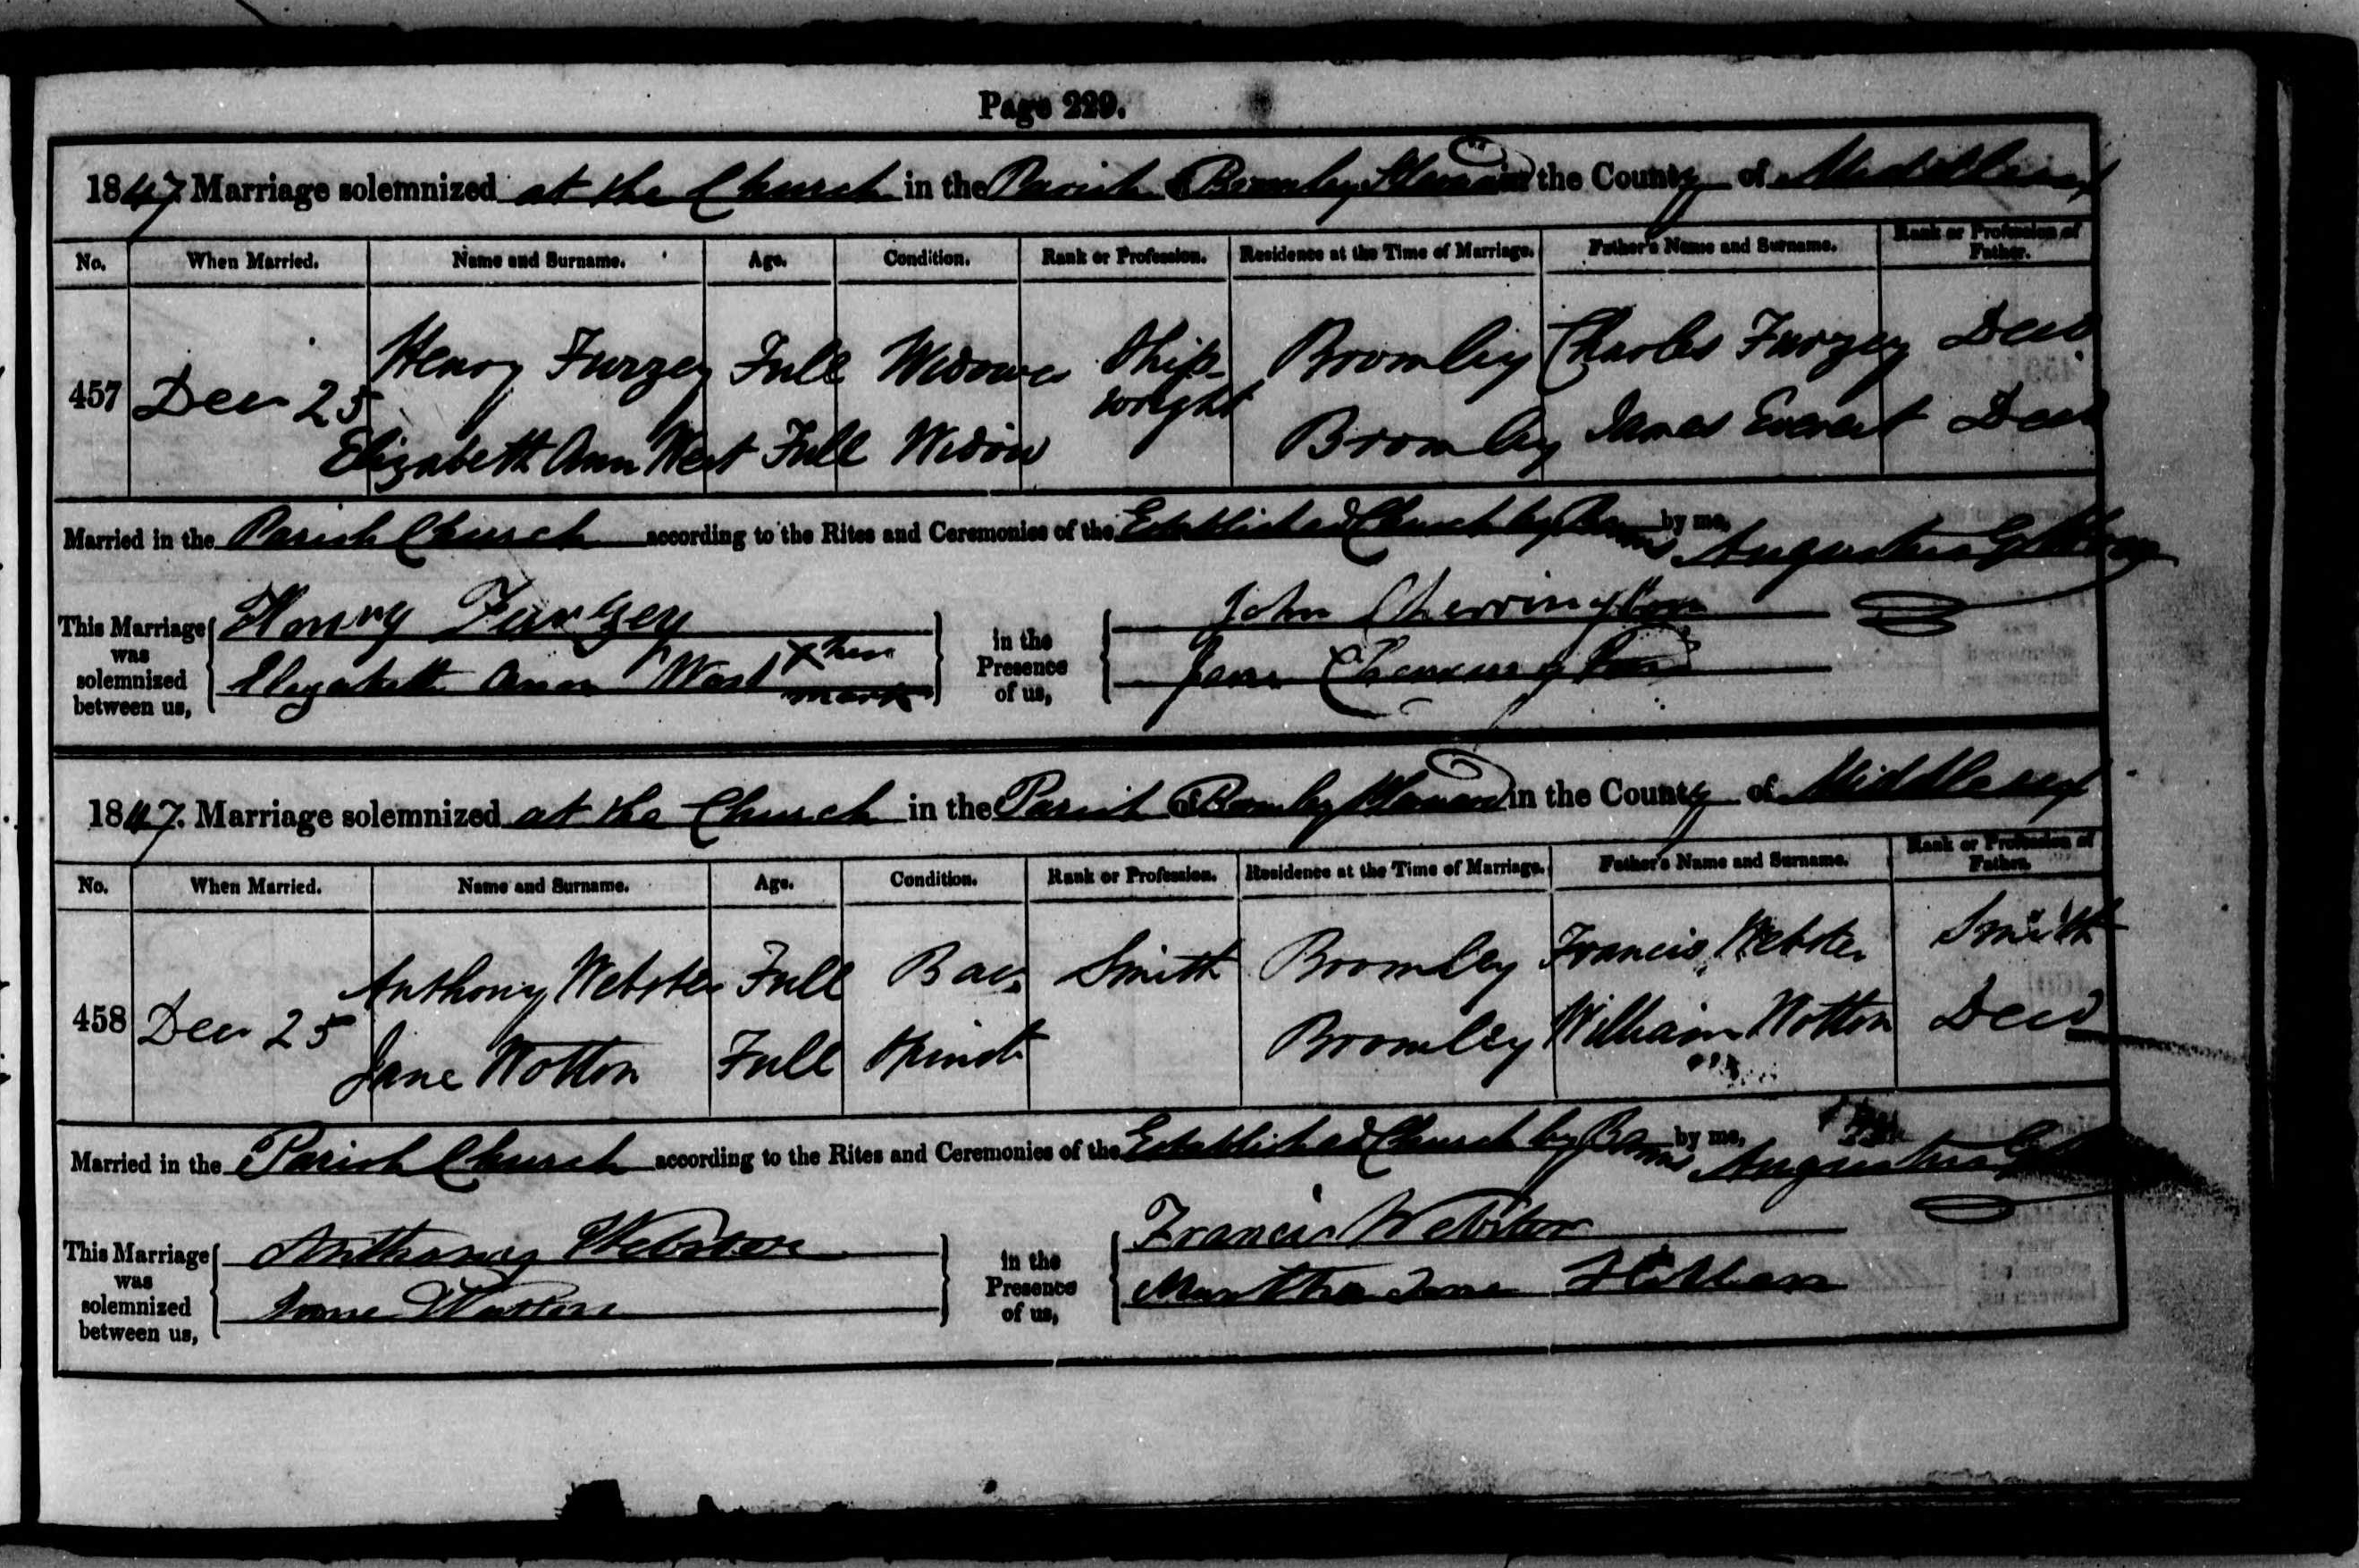 Page 229.
1847 Marriage solemnized at the Church in the Parish of Bromley in the County of Middlesex
No. When Married. Name and Surname. Age. Condition. Rank or Profession. Residence at the Time of Marriage. Father's Name and Surname. Rank or Profession of Father.
457 Dec 25 Henry Furzey Full Widower Ship-wright Bromley Charles Furzey Dead
Elizabeth Ann West Full Widow Bromley James Everest Dead
Married in the Parish Church according to the Rites and Ceremonies of the Established Church by Banns by me, Augustus G
This Marriage was solemnized between us, Henry Furzey in the Presence of us, John Cherrington
Elizabeth Ann West X her mark Jane Cherrington
1847. Marriage solemnized at the Church in the Parish of Bromley in the County of Middlesex
No. When Married. Name and Surname. Age. Condition. Rank or Profession. Residence at the Time of Marriage. Father's Name and Surname. Rank or Profession of Father.
458 Dec 25 Anthony Webster Full Bac. Smith Bromley Francis Webster Smith
Jane Wotton Full Spinst Bromley William Wotton Dead
Married in the Parish Church according to the Rites and Ceremonies of the Established Church by Banns by me, Augustus G
This Marriage was solemnized between us, Anthony Webster in the Presence of us, Francis Webster
Jane Wotton Martha Jane